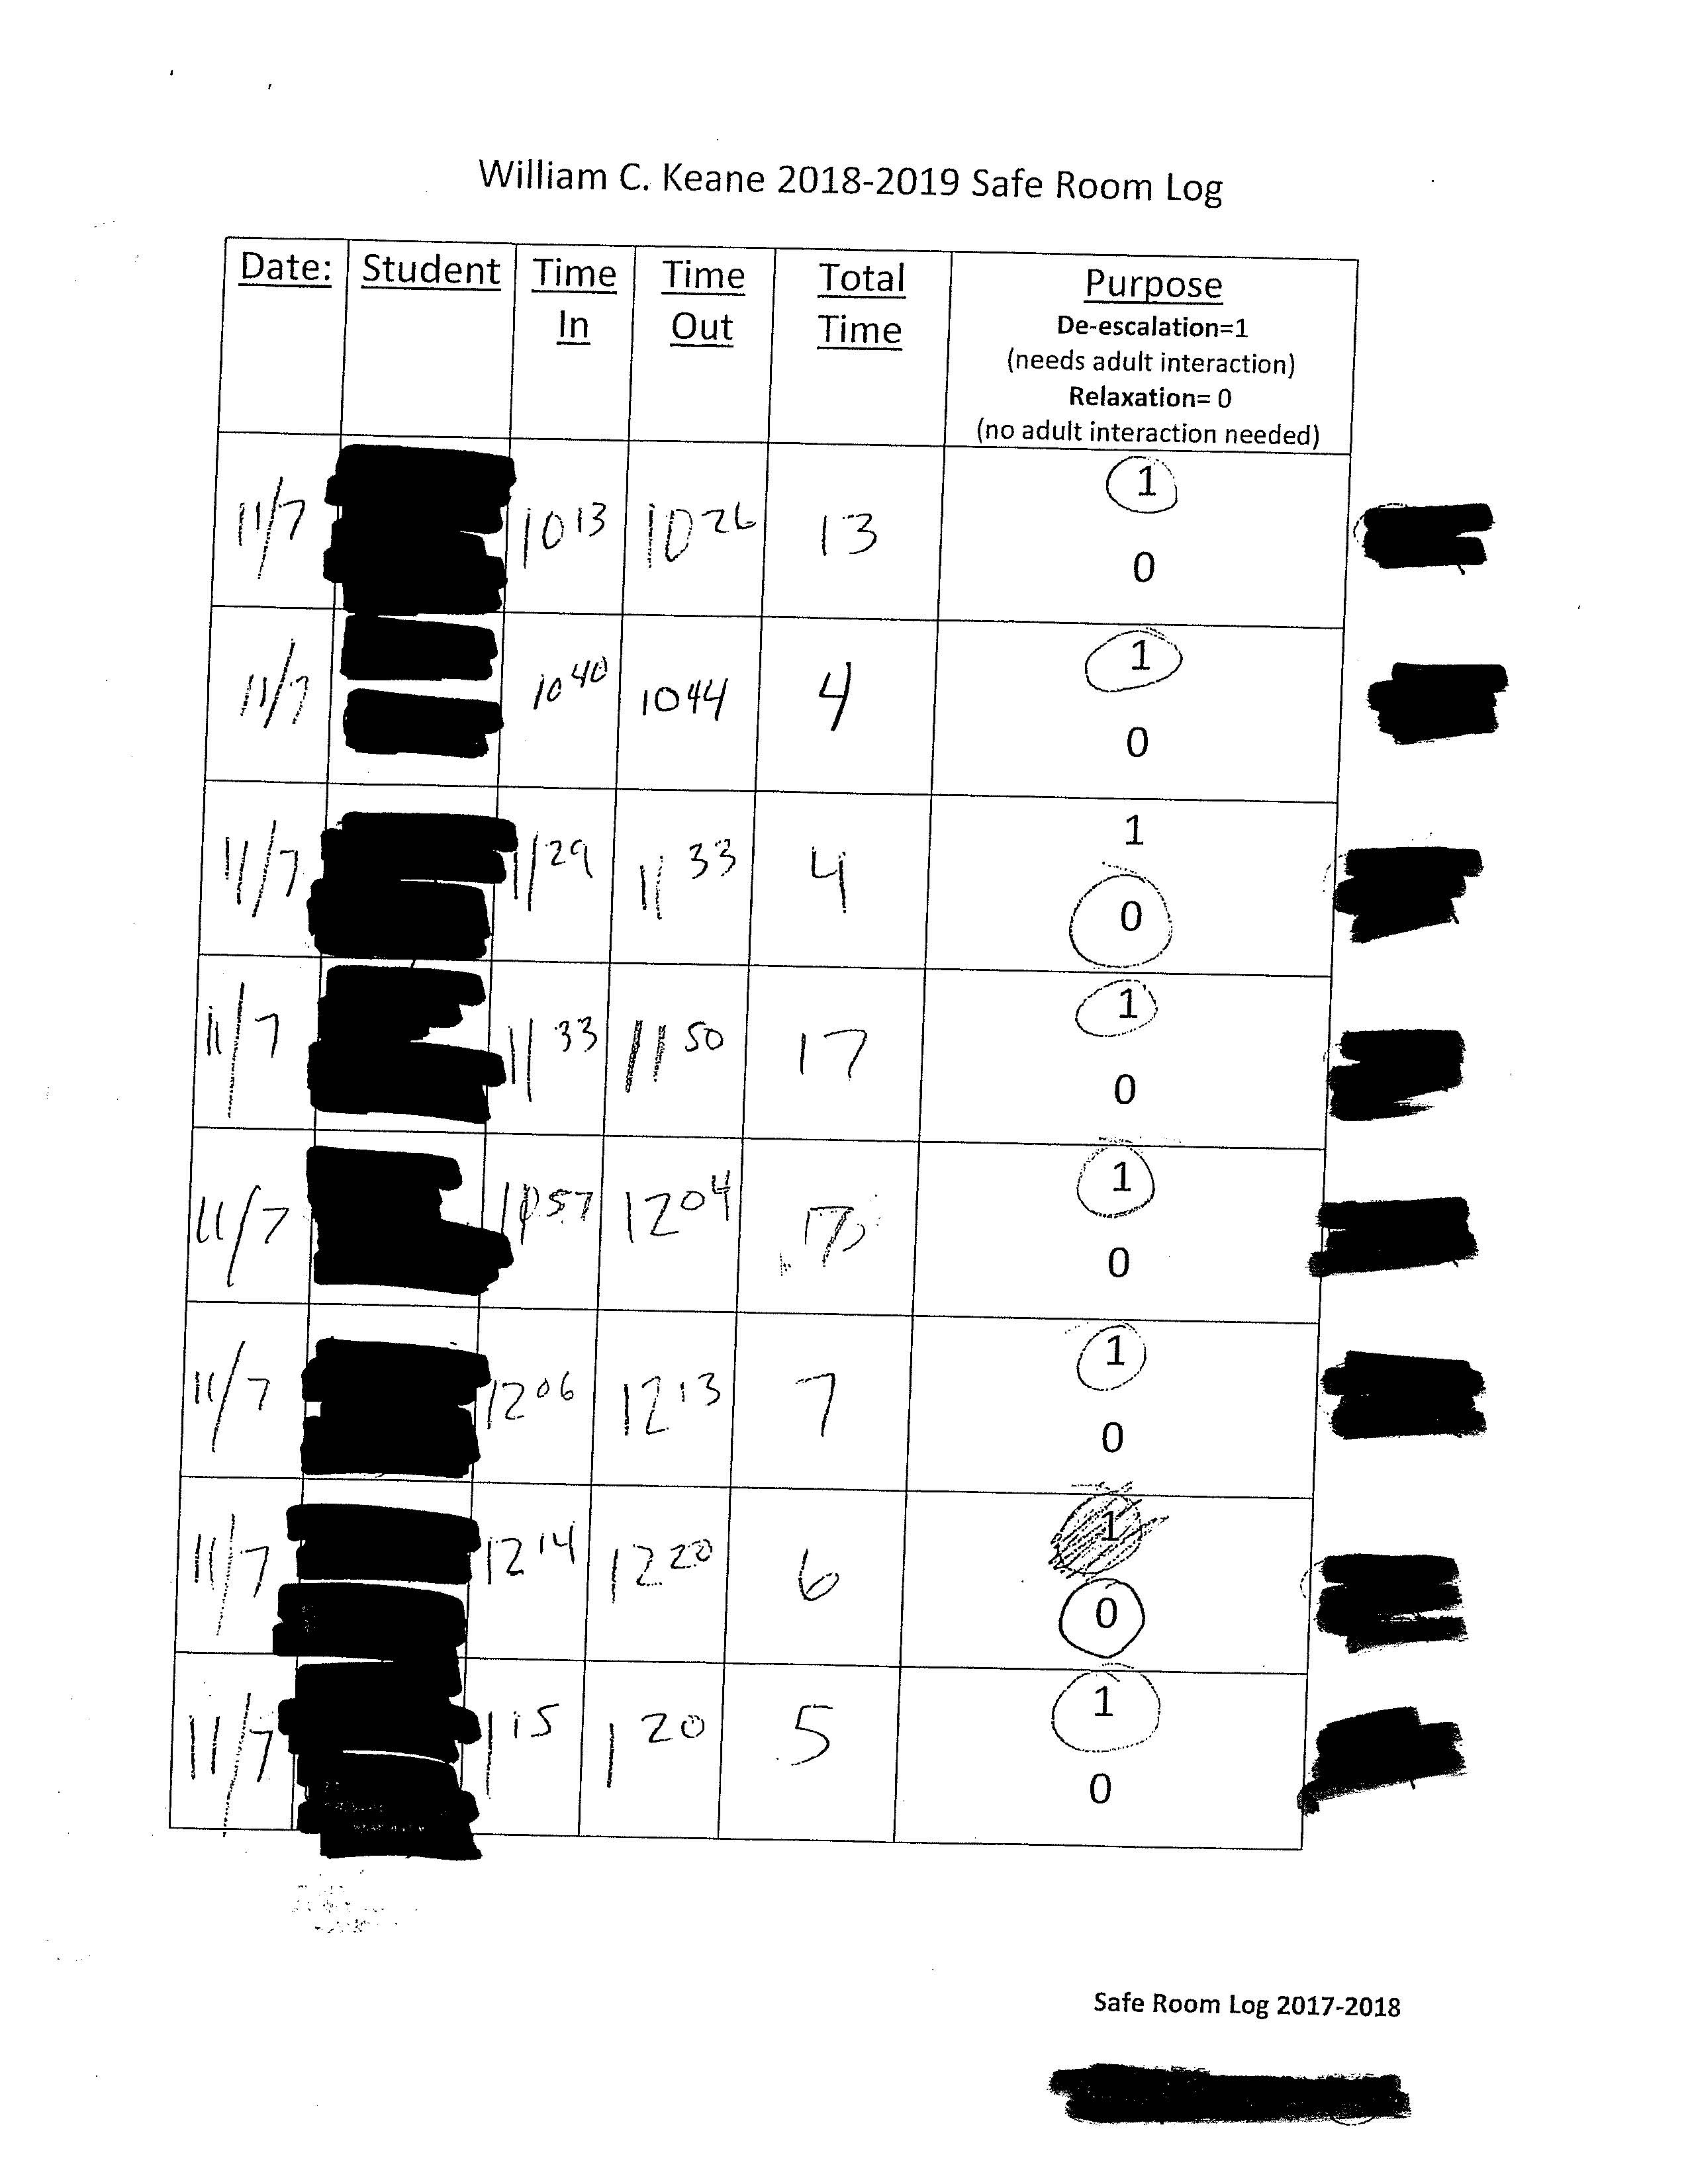 William C. Keane 2018-2019 Safe Room Log
Date: Student Time In Time Out Total Time Purpose
De-escalation=1
(needs adult interaction)
Relaxation= 0
(no adult interaction needed)
11/7 10 13 10 26 13 1
0
11/7 10 40 1044 4 1
0
11/7 11 29 11 33 4 1
0
11/7 11 33 11 50 17 1
0
11/7 11 57 12 04 7 1
0
11/7 12 06 12 13 7 1
0
11/7 12 14 12 20 6 1
0
11/7 1 15 1 20 5 1
0
Safe Room Log 2017-2018